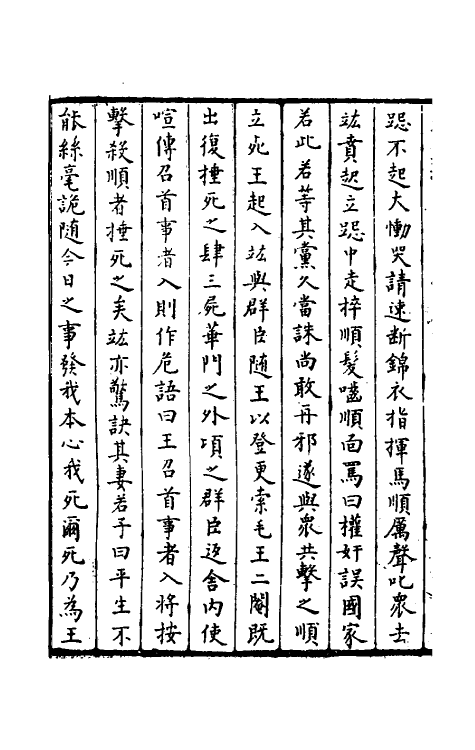 跽不起大慟哭請速断錦衣指揮馬順厲聲叱衆去
竑賁起立跽中走捽順髮嚙順面罵曰權奸誤國家
若此若等其黨久當誅尚敢再邪遂與衆共擊之順
立死王起入竑與群臣随王以登更索毛王二閹既
出復捶死之肆三屍華門之外項之群臣返舍内使
喧傳召首事者入則作危語曰王召首事者入將按
擊殺順者捶死之矣竑亦驚訣其妻若子曰平生不
能絲毫詭随今日之事發我本心我死爾死乃為王